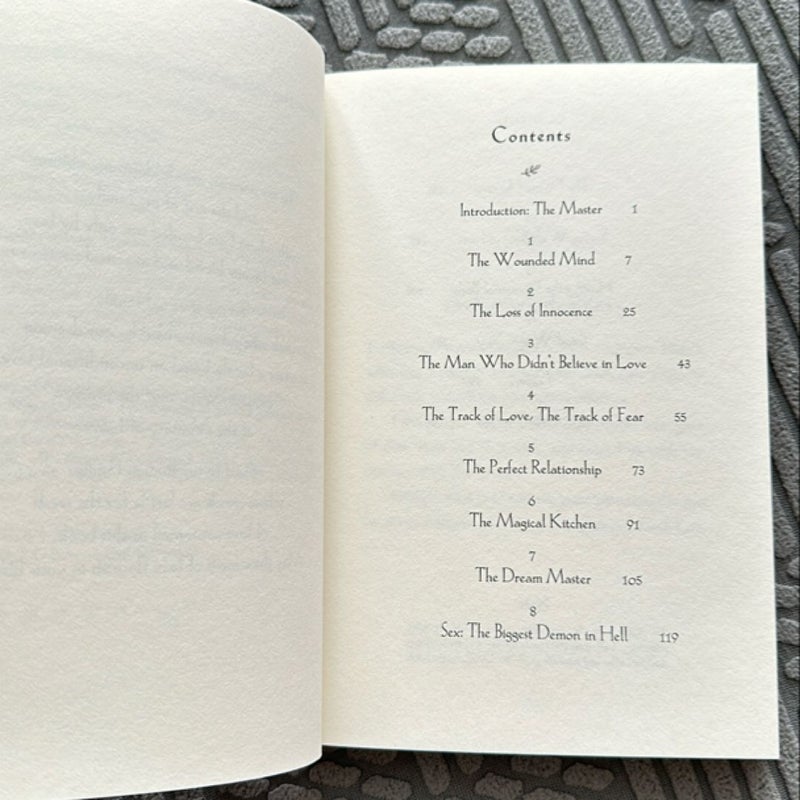 Contents
Introduction: The Master 1
1
The Wounded Mind 7
2
The Loss of Innocence 25
3
The Man Who Didn't Believe in Love 43
4
The Track of Love, The Track of Fear 55
5
The Perfect Relationship 73
6
The Magical Kitchen 91
7
The Dream Master 105
8
Sex: The Biggest Demon in Hell 119